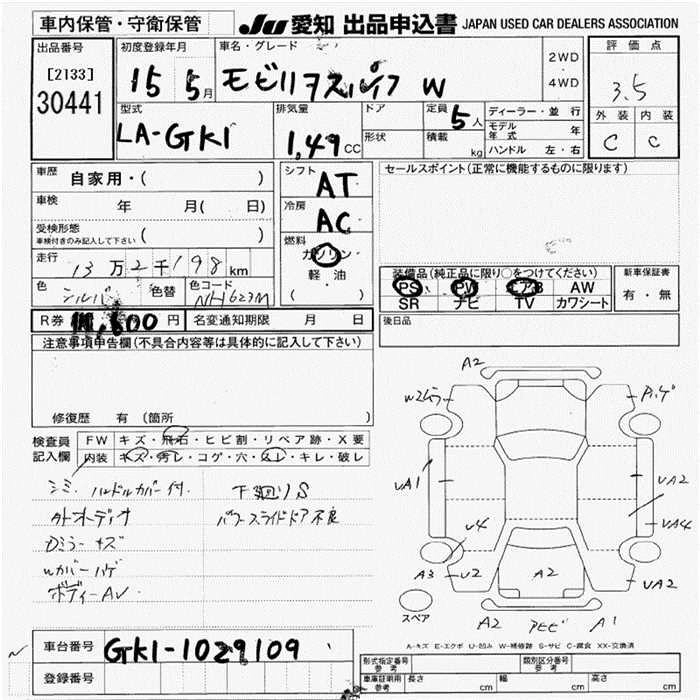 車内保管・守衛保管
JU 愛知 出品申込書 JAPAN USED CAR DEALERS ASSOCIATION
出品番号
[2133]
30441
初度登録年月
15 5月
車名・グレード
モビリオスパイク W
2WD
・
4WD
評価点
3.5
外装 内装
C C
型式
LA-GK1
排気量
1,49 CC
ドア
形状
定員 5人
積載 kg
ディーラー・並行
モデル年式 年
ハンドル 左・右
車歴 自家用・( )
車検 年 月( 日)
受検形態
車検付きのみ記入して下さい ( )
走行 13万2千198km
色 シルバー 色替 色コード NH623M
シフト
AT
冷房
AC
燃料
ガソリン
軽・油
( )
セールスポイント(正常に機能するものに限ります)
装備品(純正品に限り○をつけてください)
PS PW エアB AW
SR ナビ TV カワシート
新車保証書
有・無
R券 円 名変通知期限 月 日
後日品
注意事項申告欄(不具合内容等は具体的に記入して下さい)
修復歴 有 (箇所 )
検査員
記入欄
FW キズ・飛石・ヒビ割・リペア跡・X要
内装 キズ・汚レ・コゲ・穴・スレ・キレ・破レ
シミ ハルドルカバー付 下廻りS
オトオーディオ パワースライドドア不良
Dミラーキズ
Wカバーハゲ
ボディーAU
A2
W2 ハゲ
UA1 UA2
U4 UA4
A3 U2 A2 UA2
スペア
A2 アビビ A1
A-キズ E-エクボ U-凹み W-補修跡 S-サビ C-腐食 XX-交換済
車台番号 GK1-1029109
登録番号
形式指定番号 参考 類別区分番号 参考
車庫証明用 参考 長さ cm 幅 cm 高さ cm